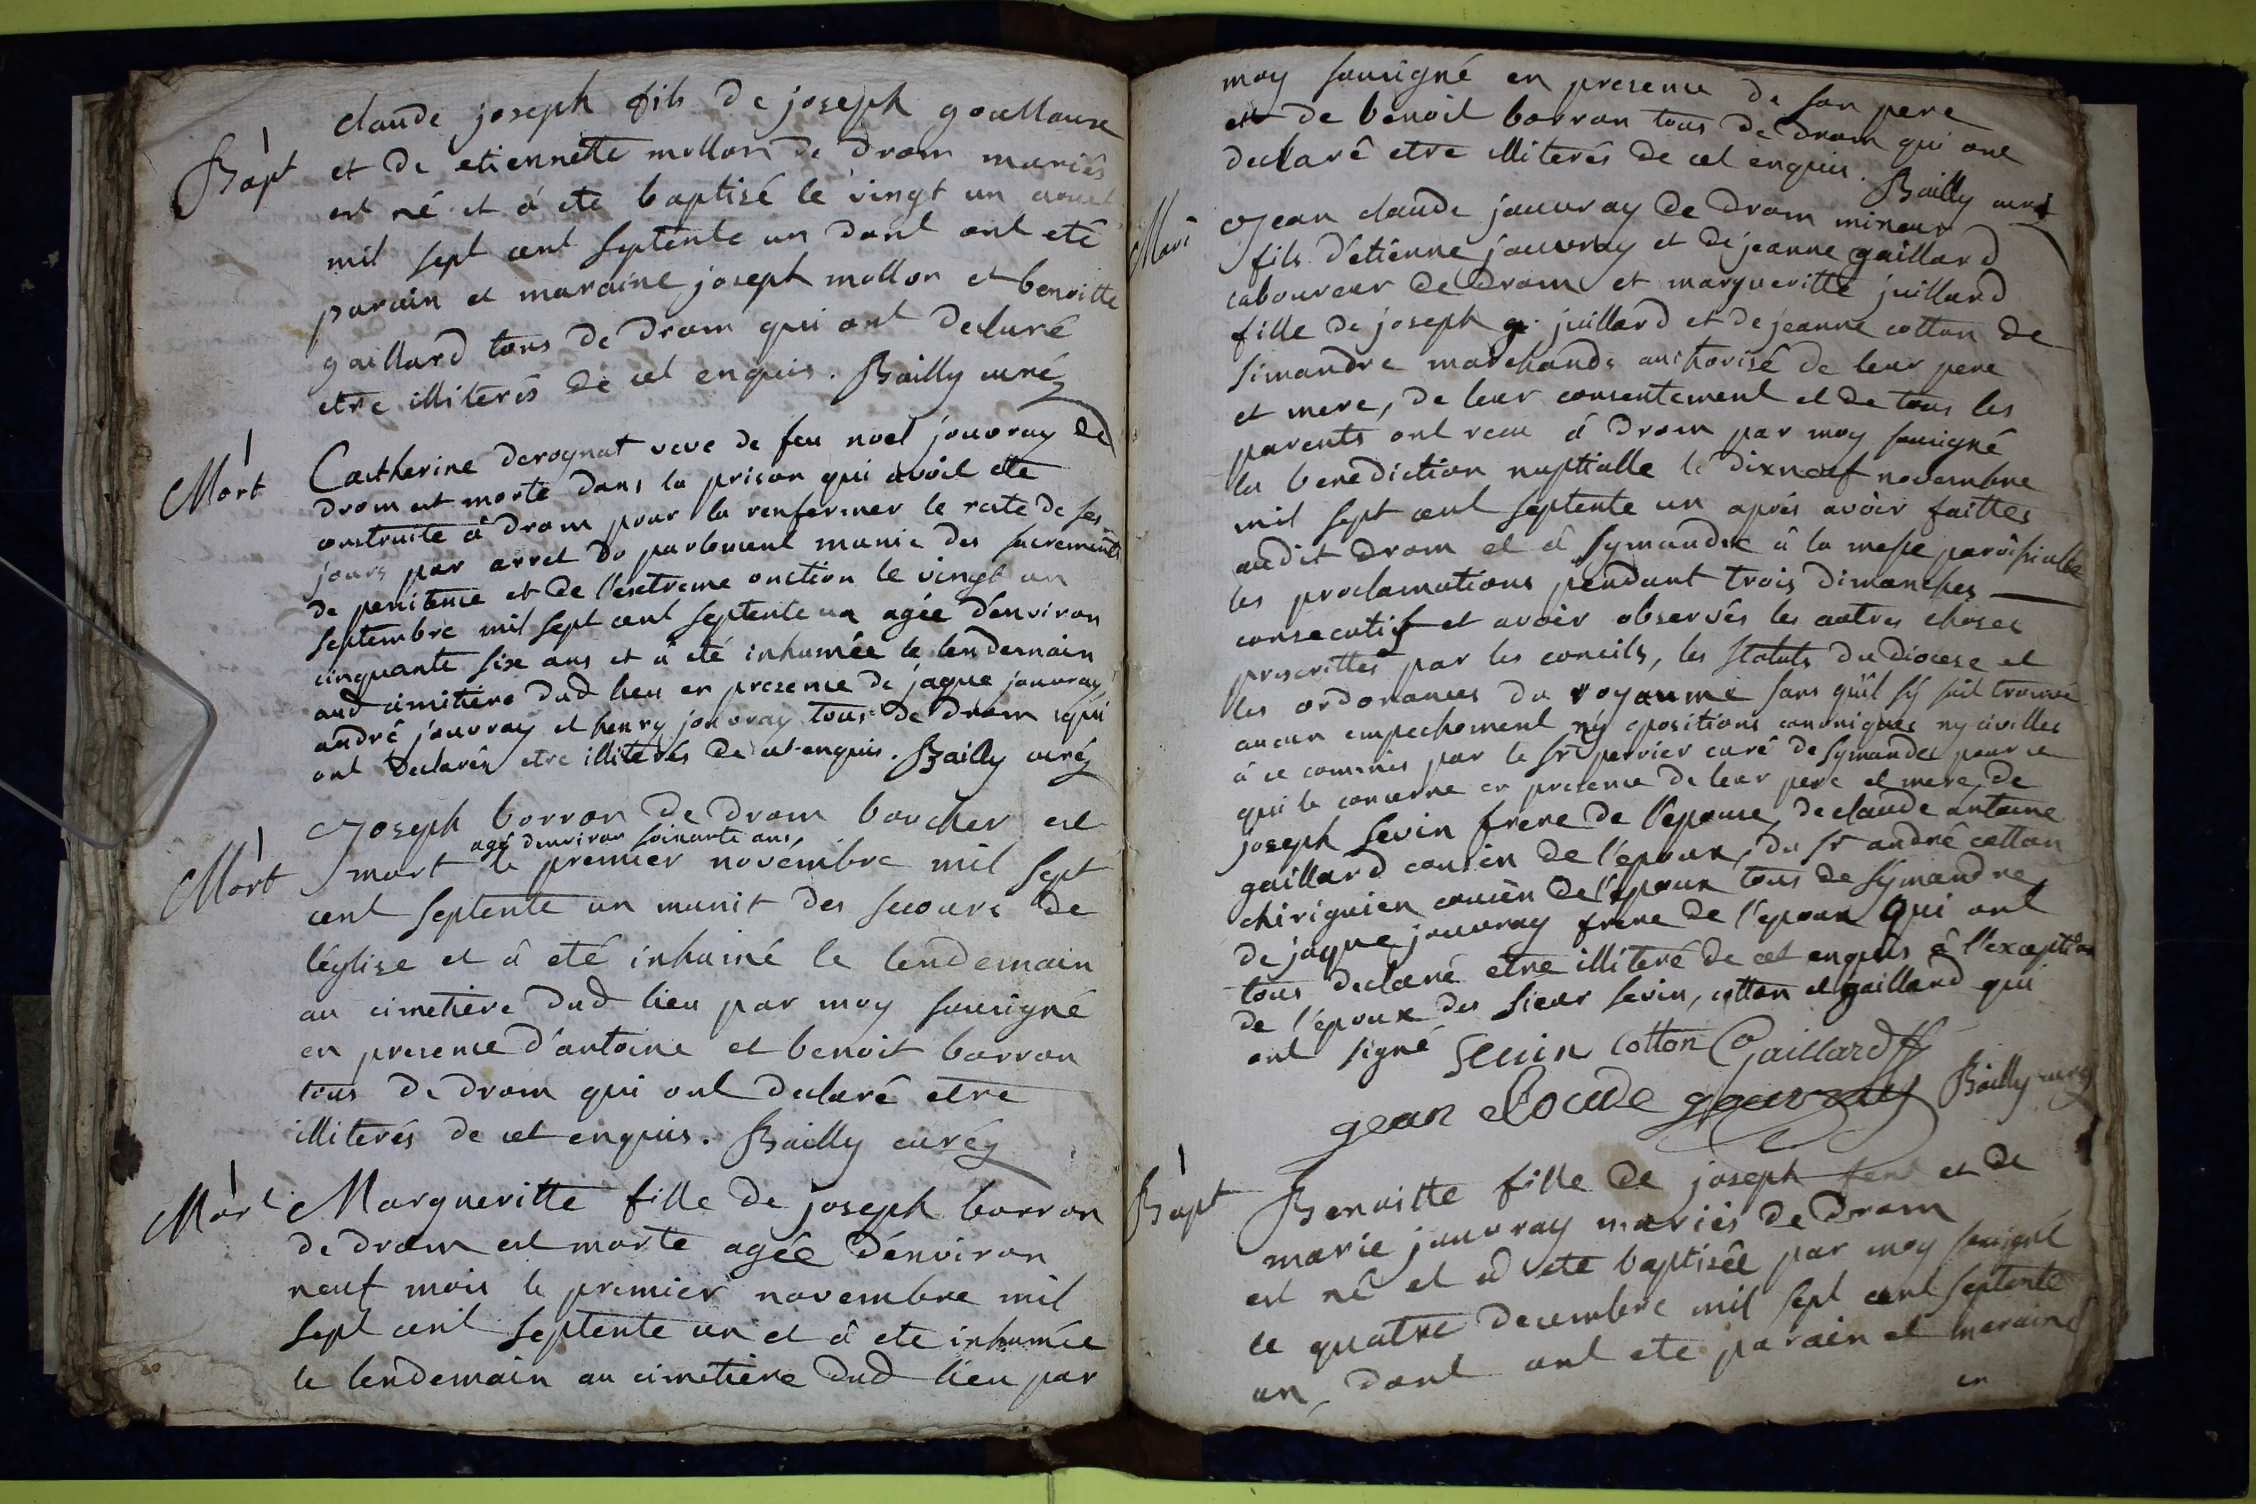 claude joseph fils de joseph
Bapt et de etiennette mollon de drom mariés
est né et á eté baptisé le vingt un aoust
mil sept cent septente un dont ont eté
parain et maraine joseph mollon et benoitte
gaillard tous de drom qui ont declaré
etre illiterés de cet enquis. Bailly curé
Mort Catherine derognat veve de feu noel jouvray de
drom est morte dans la prison qui avoit ete
construite á drom pour la renfermer le reste de ses
jours par arret du parlement munie des sacrements
de penitence et de l'exetreme onction le vingt un
septembre mil sept cent septente un agée d'environ
cinquante six ans et á eté inhumée le lendemain
aud cimitiére dud lieu en presence de jaque jouvray
andré jouvray et henry jouvray tous de drom qui
ont declarés etre illiterés de cet enquis. Bailly curé
Joseph borron de drom boucher est
agé d'environ soixante ans,
Mort mort le premier novembre mil sept
cent septente un munit des secours de
l'église et á eté inhumé le lendemain
au cimetiére dud lieu par moy sousigné
en presence d'antoine et benoit borron
tous de drom qui ont declaré etre
illiterés de cet enquis. Bailly curé
Mort Margueritte fille de joseph borron
de drom est morte agée d'environ
neuf mois le premier novembre mil
sept cent septente un et á ete inhumée
le lendemain au cimetiére dud lieu par
moy sousigné en presence de son pere
et de benoit borron tous de drom qui ont
declaré etre illiterés de cet enquis. Bailly curé
Mari Jean claude jouvray de drom mineur
fils d'etienne jouvray et de jeanne gaillard
laboureur de drom et margueritte juillard
fille de joseph juillard et de jeanne cotton de
simandre marchands authorisé de leur pere
et mere, de leur consentement et de tous les
parents ont recu á drom par moy sousigné
la benediction nuptialle le dixneuf novembre
mil sept cent septente un aprés avoir faittes
audit drom et á symandre á la messe paroissialle
les proclamations pendant trois dimanches
consecutif et avoir observés les autres choses
prescrittes par les concils, les statuts du diocese et
les ordonances du royaume sans qu'il s'y soit trouvé
aucun empechement ny opositions canoniques ny civilles
á ce commis par le sr pervier curé de symandre pour ce
qui le concerne en presence de leur pere et mere, de
joseph sevin frere de l'epouse, de claude antoine
gaillard cousin de l'epoux, du sr andré cotton
chirigien cousin de l'epoux tous de symandre,
de jaque jouvray frere de l'epoux qui ont
tous declaré etre illiteré de cet enquis á l'exception
de l'epoux des sieur sevin, cotton et gaillard qui
ont signé sevin cotton Gaillard
gean cloude gouvray Bailly curé
Bapt Benoitte fille de joseph et de
marie jouvray mariés de drom
est né et a ete baptisée par moy sousigné
le quatre decembre mil sept cent septente
un, dont ont ete parain et maraine